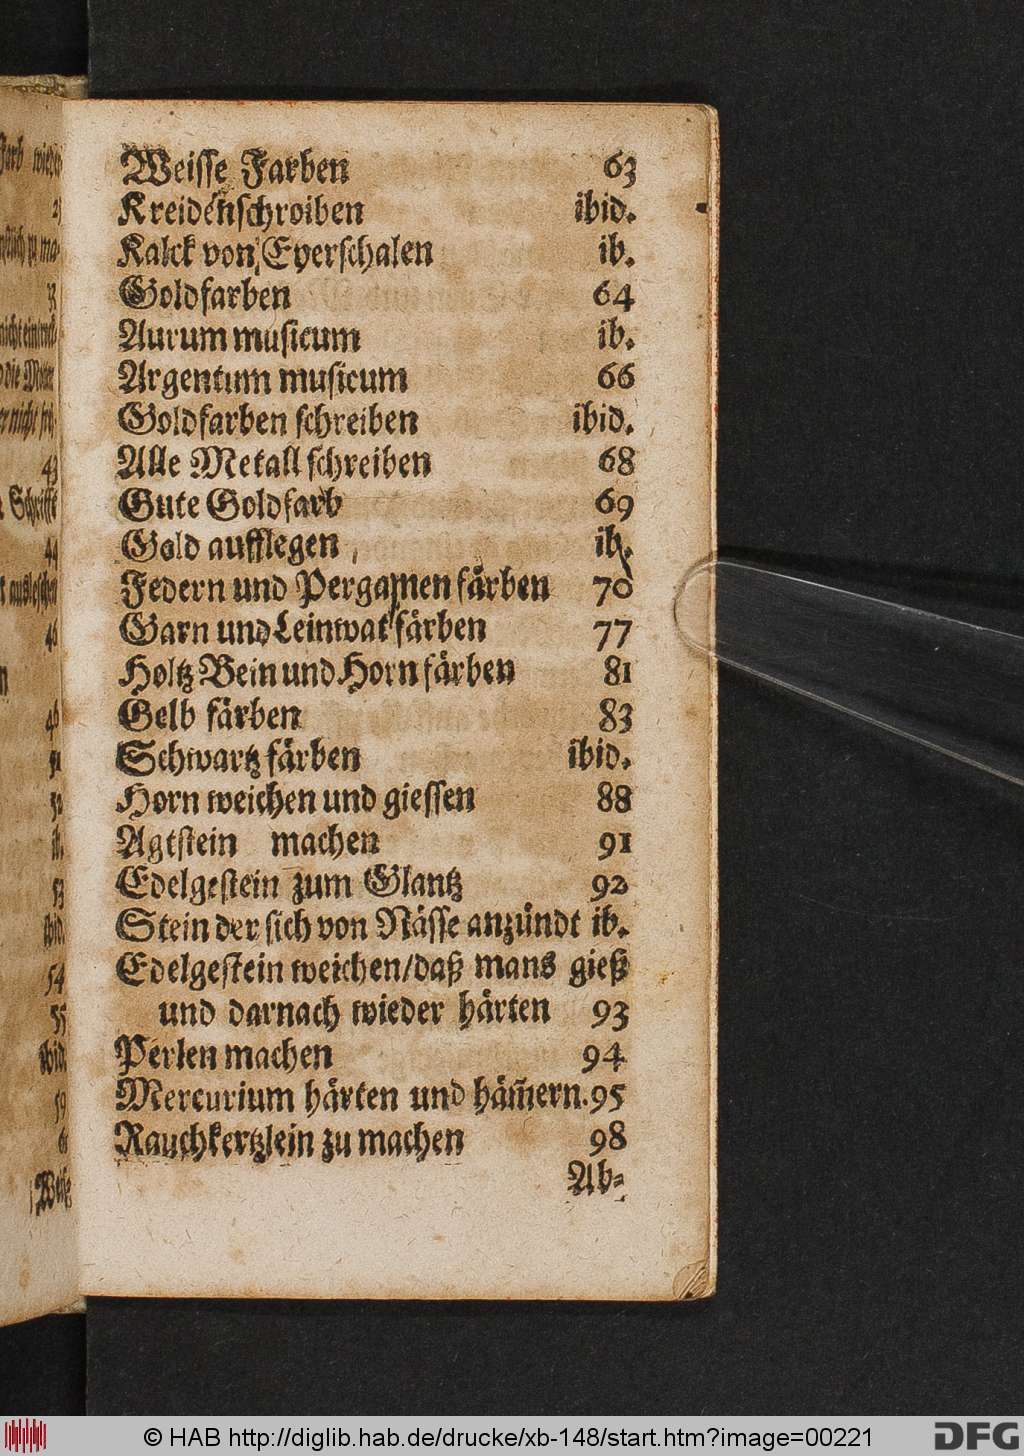 Weisse Farben 63
Kreidenschroiben ibid.
Kalck von Eyerschalen ib.
Goldfarben 64
Aurum musicum ib.
Argentum musicum 66
Goldfarben schreiben ibid.
Alle Metall schreiben 68
Gute Goldfarb 69
Gold aufflegen ib.
Federn und Pergamen färben 70
Garn und Leinwat färben 77
Holtz Bein und Horn färben 81
Gelb färben 83
Schwartz färben ibid.
Horn weichen und giessen 88
Agtstein machen 91
Edelgestein zum Glantz 92
Stein der sich von Nässe anzündt ib.
Edelgestein weichen/daß mans gieß
und darnach wieder härten 93
Perlen machen 94
Mercurium härten und häm̄ern. 95
Rauchkertzlein zu machen 98
Ab⸗
© HAB http://diglib.hab.de/drucke/xb-148/start.htm?image=00221
DFG